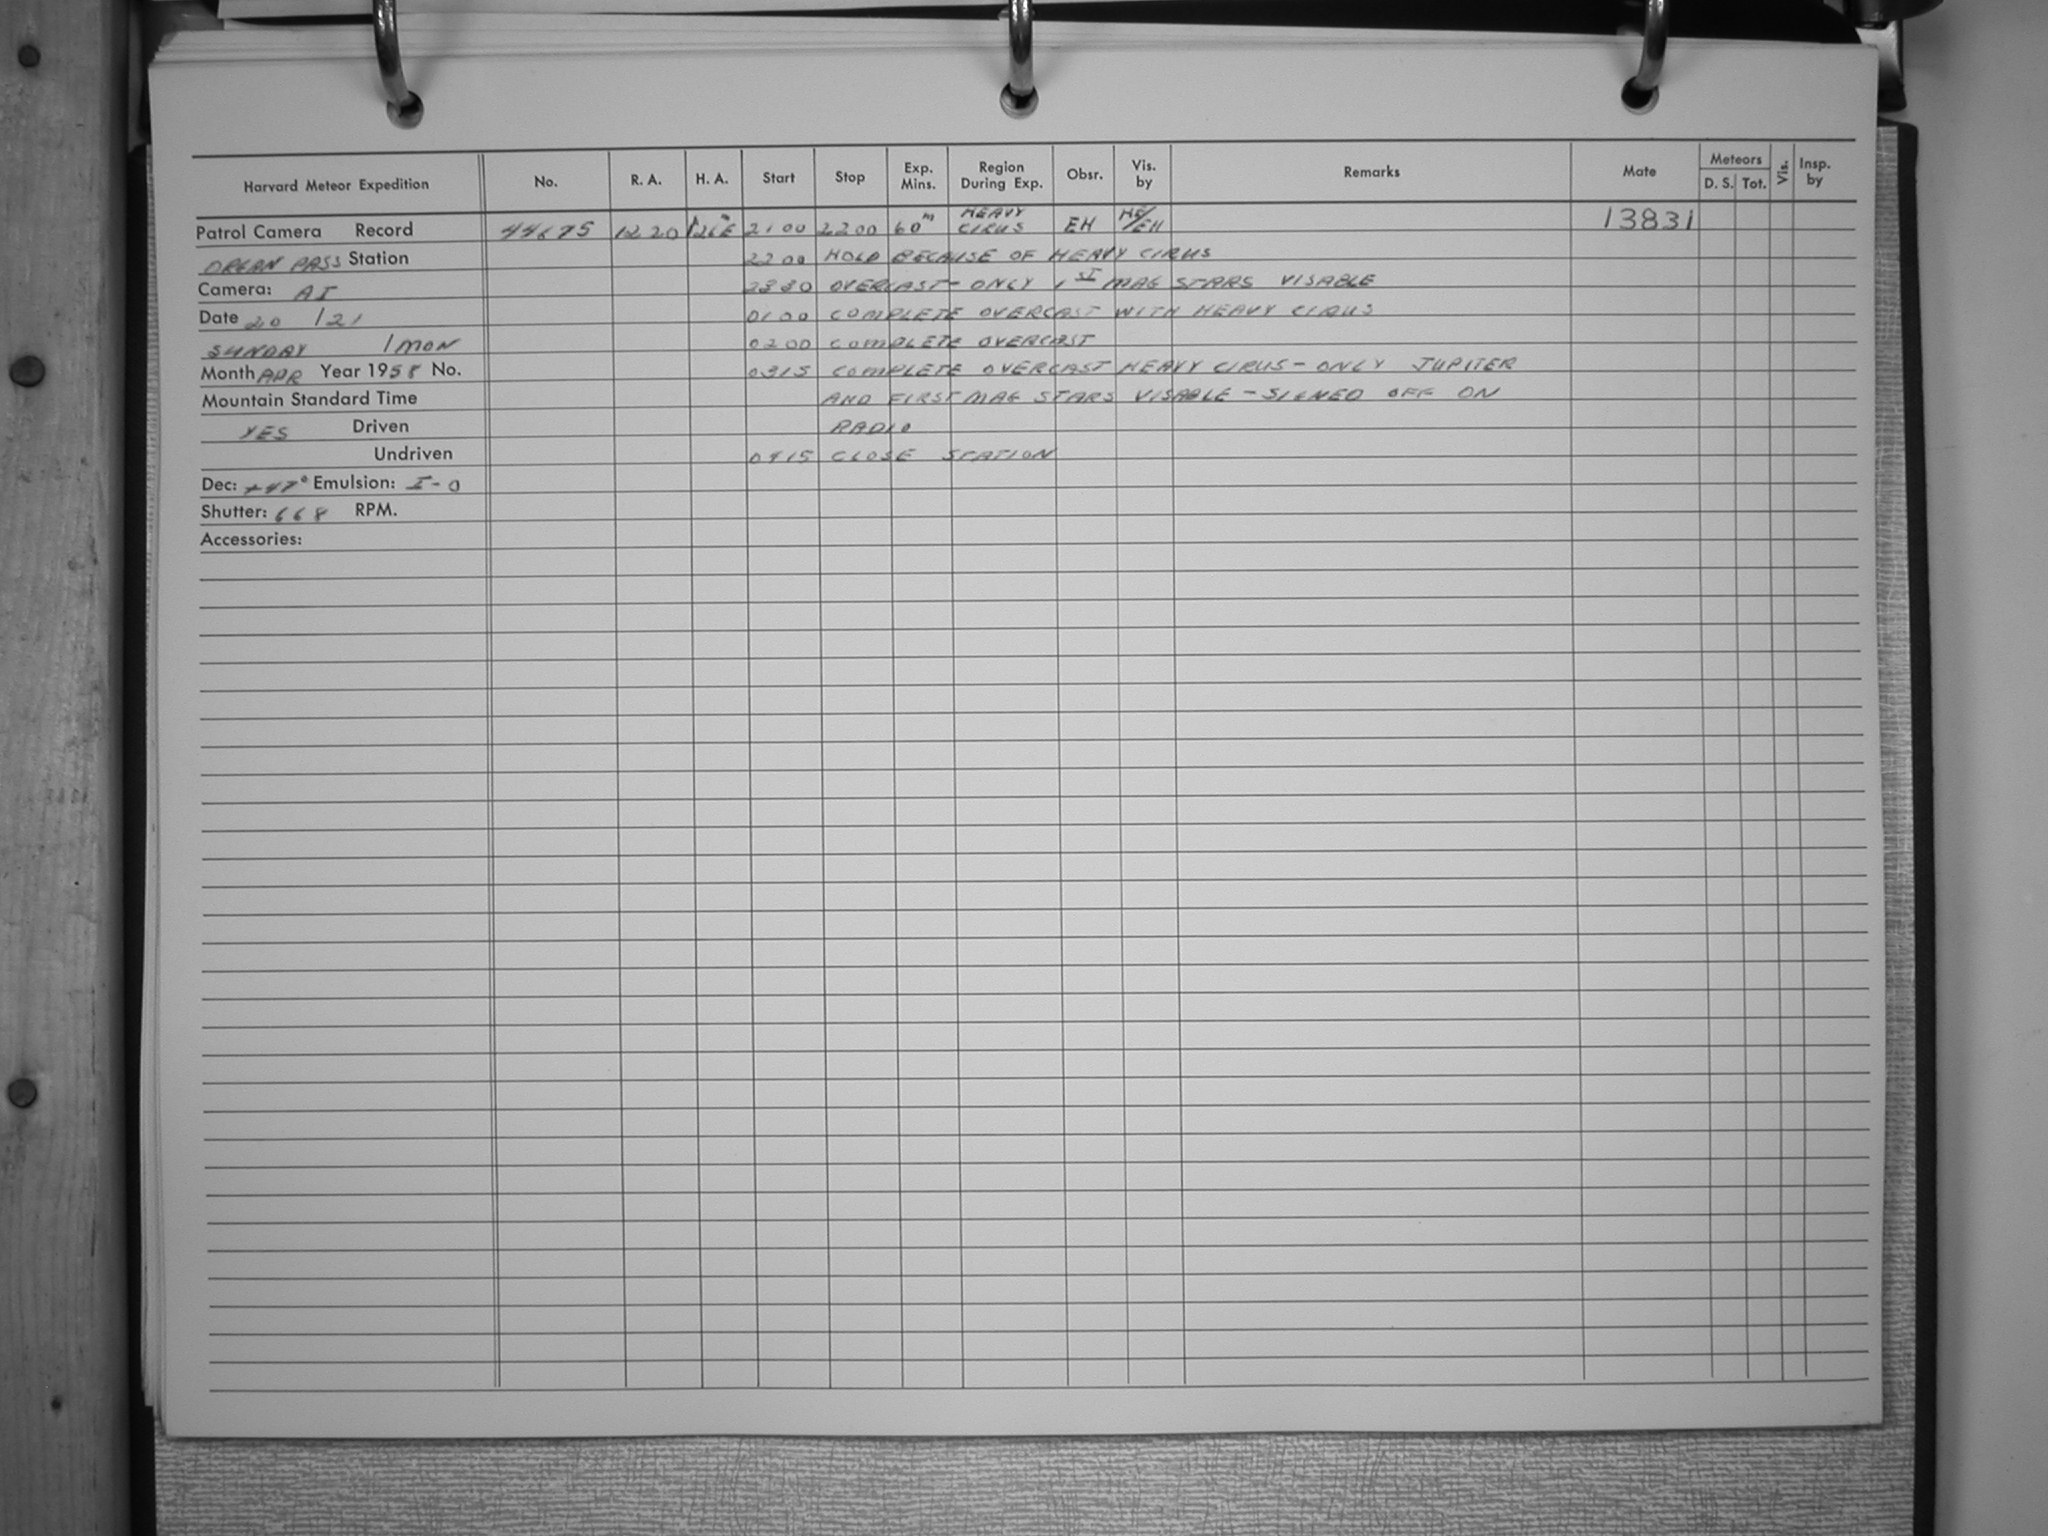 Harvard Meteor Expedition No. R. A. H. A. Start Stop Exp. Mins. Region During Exp. Obsr. Vis. by Remarks Mate Meteors D. S. Tot. Vis. Insp. by
Patrol Camera Record 44675 1220 2100 2200 60m HEAVY CIRUS EH HE/EH 13831
ORGAN PASS Station 2200 HOLD BECAUSE OF HEAVY CIRUS
Camera: AI 2330 OVERCAST - ONLY 1ST MAG STARS VISABLE
Date 20 /21 0100 COMPLETE OVERCAST WITH HEAVY CIRUS
SUNDAY /MON 0200 COMPLETE OVERCAST
Month APR Year 1958 No. 0315 COMPLETE OVERCAST HEAVY CIRUS - ONLY JUPITER
Mountain Standard Time AND FIRST MAG STARS VISABLE - SIGNED OFF ON
YES Driven RADIO
Undriven 0415 CLOSE STATION
Dec: +47° Emulsion: I-O
Shutter: 668 RPM.
Accessories: